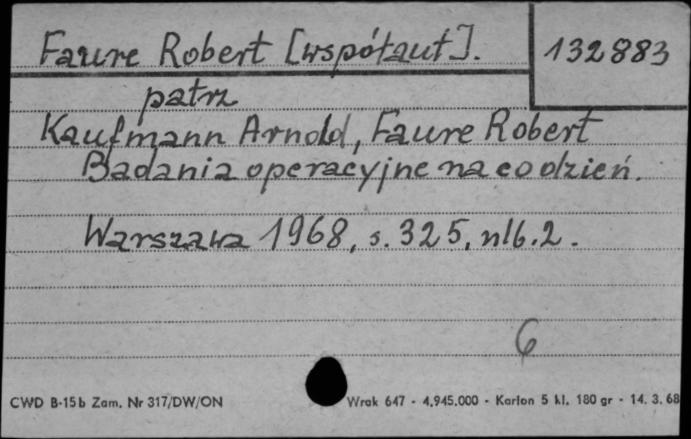 Faure Robert [współaut]. 132883
patrz
Kaufmann Arnold, Faure Robert
Badania operacyjne na co dzień.
Warszawa 1968, s. 325, nlb. 2.
6
CWD B-15b Zam. Nr 317/DW/ON Wrak 647 - 4.945.000 - Karton 5 kl. 180 gr - 14. 3. 68